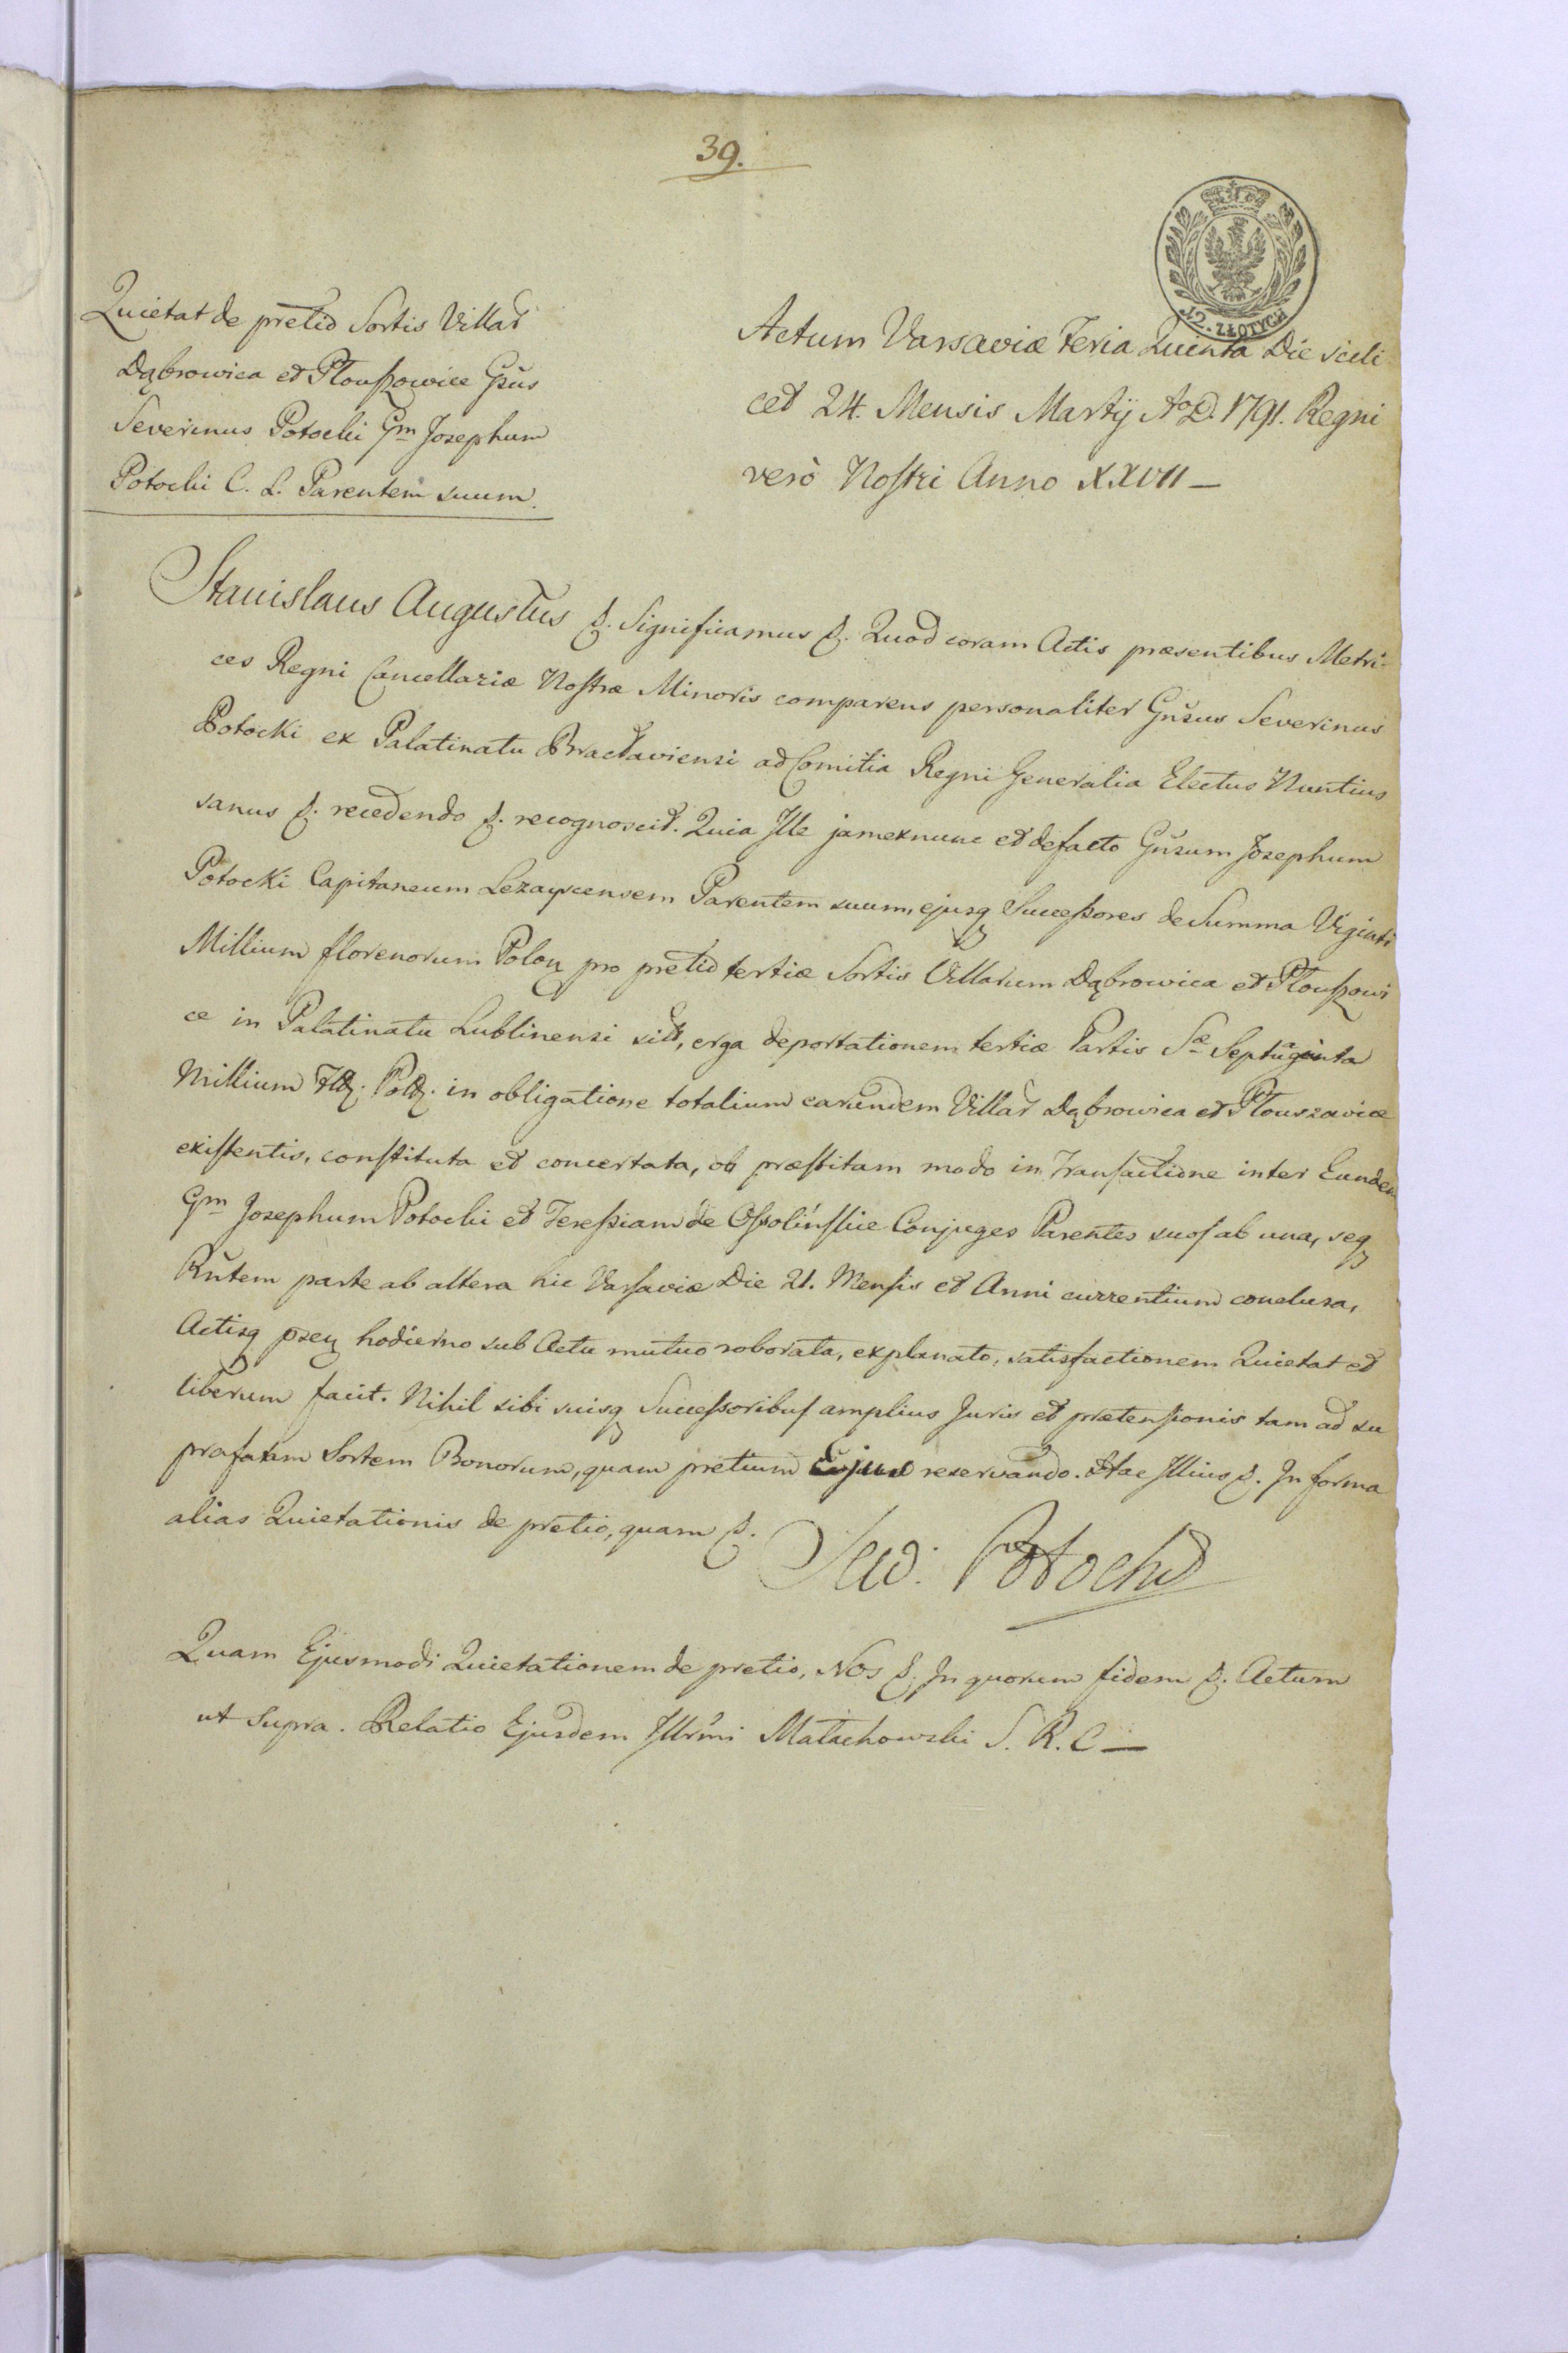 39.
12. ZŁOTYCH
Quietat de pretio Sortis Villar
Dąbrowica et Płouszowice Gsus
Severinus Potocki Gm Josephum
Potocki C. L. Parentem suum.
Actum Varsaviæ Feria Quinta Die scili
cet 24. Mensis Martÿ Ao D. 1791. Regni
verò Nostri Anno XXVII —
Stanislaus Augustus &. Significamus &. Quod coram Actis præsentibus Metri-
ces Regni Cancellariæ Nostræ Minoris comparens personaliter Gnsus Severinus
Potocki ex Palatinatu Bracłaviensi ad Comitia Regni Generalia Electus Nuntius
sanus &. recedendo &. recognoscit. Quia Ille jamexnunc et defacto Gnsum Josephum
Potocki Capitaneum Lezayscensem Parentem suum, ejusq Successores de Summa Viginti
Millium florenorum Polon pro pretio tertiæ Sortis Villarum Dąbrowica et Płouszowi
ce in Palatinatu Lublinensi sit, erga deportationem tertiæ Partis Sæ Septuaginta
Millium Fltz. Poltz. in obligatione totalium earundem Villar Dąbrowica et Płouszowice
existentis, constituta et concertata, ob præstitam modo in Transactione inter Eundem
Gm Josephum Potocki et Teressiam de Ossolińskie Conjuges Parentes suos ab una, seq
Rntem parte ab altera hic Varsaviæ Die 21. Mensis et Anni currentium conclusa,
Actisq psen hodierno sub Actu mutuo roborata, explanato, satisfactionem Quietat et
liberum facit. Nihil sibi suisq Successoribus amplius Juris et prætensionis tam ad su
prafatam Sortem Bonorum, quam pretium Ejus reservando. Hac Illius &. In forma
alias Quietationis de pretio, quam &.
Sew: Potocki
Quam Ejusmodi Quietationem de pretio, Nos &. In quorum fidem &. Actum
ut Supra. Relatio Ejusdem Illrmi Małachowski S. R. C —